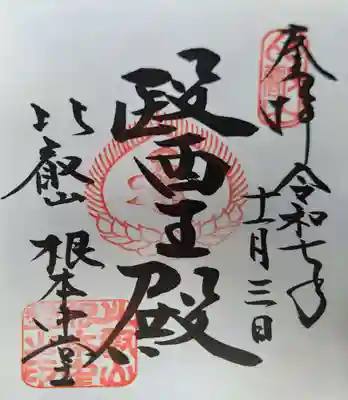 奉拝
令和七年
十一月三日
醫王殿
比叡山
根本中堂